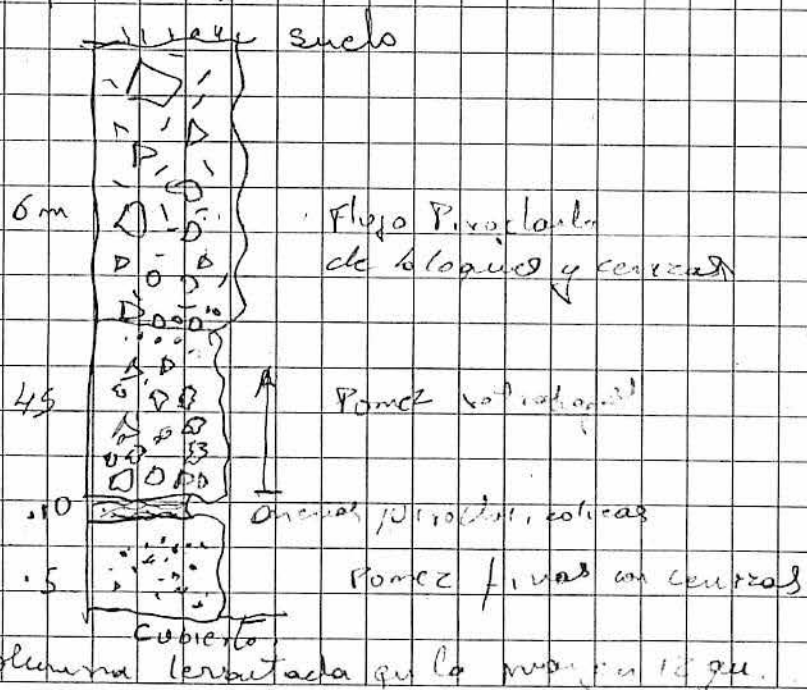 suelo
6 m
Flujo Piroclasto
de bloques y cenizas
45
Pomez
.10
arenas
.5
Pomez finas con cenizas
Cubierto
levantada en la